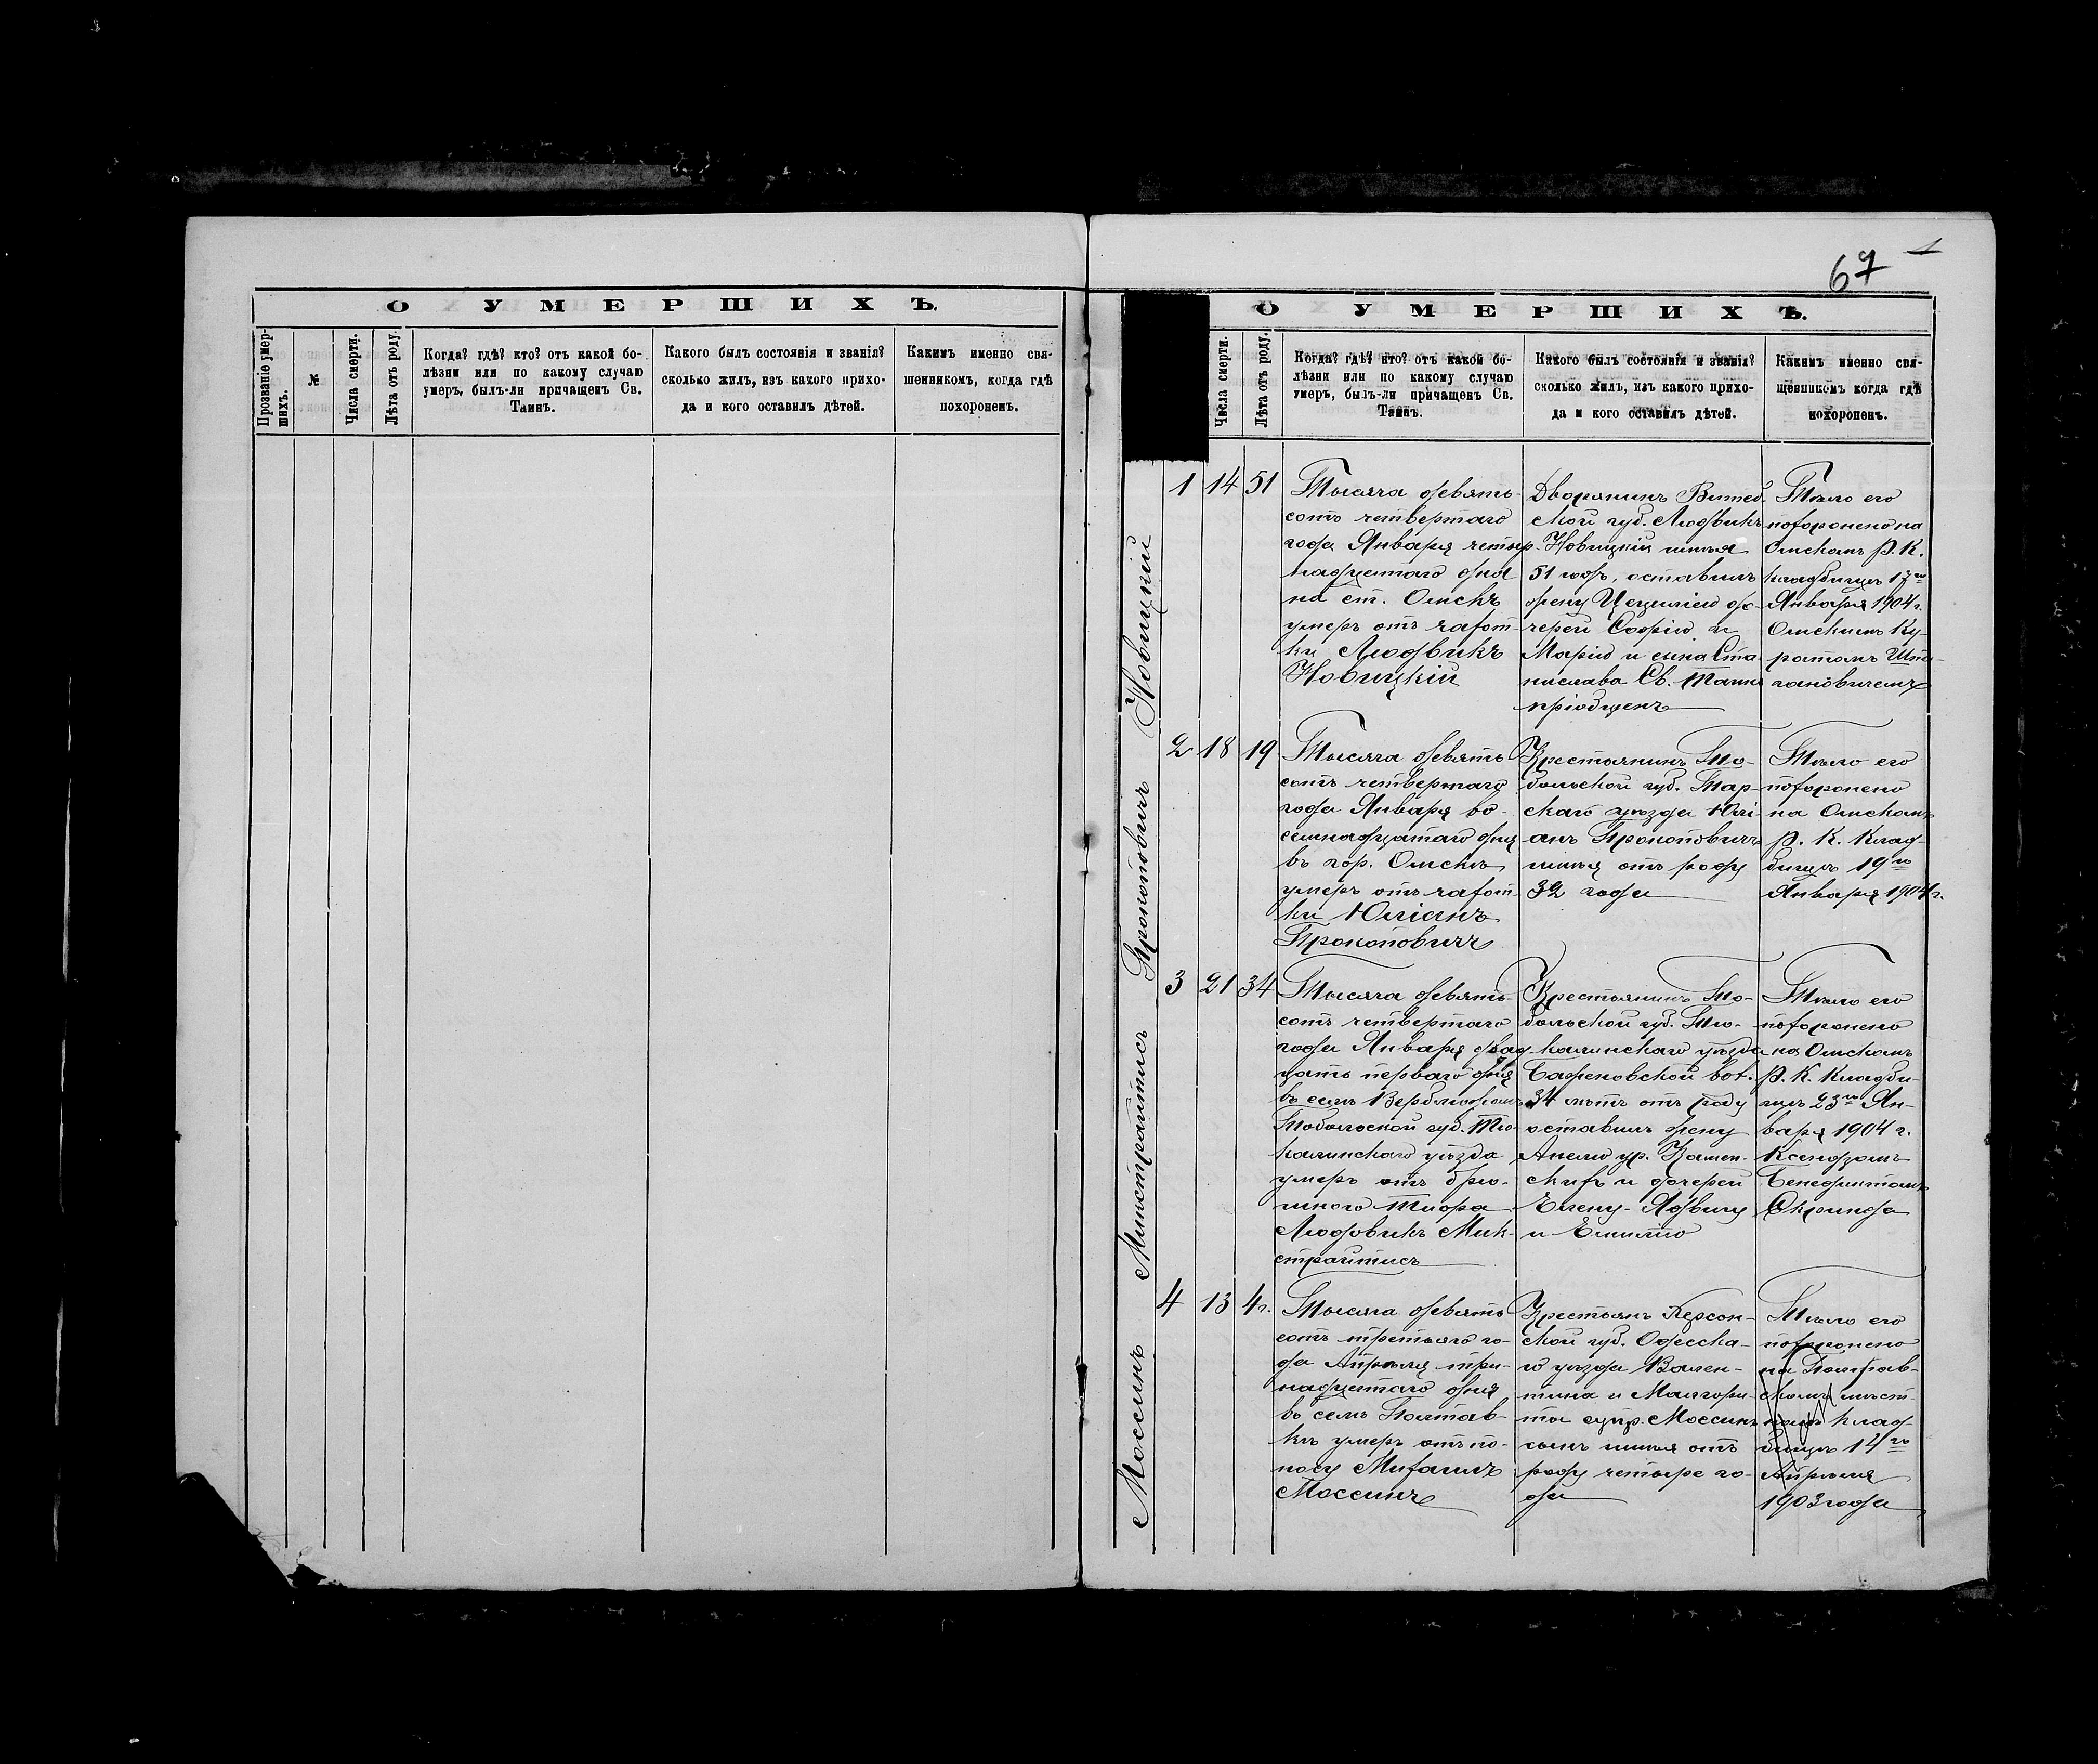 67
О УМЕРШИХЪ.
Прозваніе умер-
шихъ.
№
Числа смерти.
Лѣта отъ роду.
Когда? гдѣ? кто? отъ какой бо-
лѣзни или по какому случаю
умеръ, былъ-ли причащенъ Св.
Таинъ.
Какого былъ состоянія и званія?
сколько жилъ, изъ какого прихо-
да и кого оставилъ дѣтей.
Какимъ именно свя-
щенникомъ, когда гдѣ
похороненъ.
О УМЕРШИХЪ.
Числа смерти.
Лѣта отъ роду.
Когда? гдѣ? кто? отъ какой бо-
лѣзни или по какому случаю
умеръ, былъ-ли причащенъ Св.
Таинъ.
Какого былъ состоянія и званія?
сколько жилъ, изъ какого прихо-
да и кого оставилъ дѣтей.
Какимъ именно свя-
щенникомъ когда гдѣ
похороненъ.
Новицкій
1
14
51
Тысяча девять-
сотъ четвертаго
года Января четыр-
надцатаго дня
на ст. Омскъ
умеръ отъ чахот-
ки Людвикъ
Новицкій
Дворянинъ Витеб-
ской губ. Людвикъ
Новицкій имѣя
51 годъ, оставилъ
жену Цецилію до-
черей Софію и
Марію и сына Ста-
нислава Св. Таинъ
пріобщенъ
Тѣло его
похоронено на
Омскомъ Р. К.
кладбищѣ 17го
Января 1904 г.
Омскимъ Ку-
ратомъ
Прокоповичъ
2
18
19
Тысяча девять
сотъ четвертаго
года Января во-
семнадцатаго дня
въ гор. Омскѣ
умеръ отъ чахот-
ки Юліанъ
Прокоповичъ
Крестьянинъ То-
больской губ. Тар-
скаго уѣзда Юлі-
анъ Прокоповичъ
имѣя отъ роду
32 года
Тѣло его
похоронено
на Омскомъ
Р. К. Клад-
бищѣ 19го
Января 1904 г.
Микстрайтисъ
3
21
34
Тысяча девять-
сотъ четвертаго
года Января двад-
цать перваго дня
въ селѣ
Тобольской губ. Тю-
калинскаго уѣзда
умеръ отъ брю-
шного тифа
Людовикъ Мик-
страйтисъ
Крестьянинъ То-
больской губ. Тю-
калинскаго уѣзда
Баженовской вол.
34 лѣтъ отъ роду
оставилъ жену
Анелю ур. Камен-
скихъ и дочерей
Елену-Ядвигу
и Емилію
Тѣло его
похоронено
на Омскомъ
Р. К. Кладби-
щѣ 23го Ян-
варя 1904 г.
Ксендзомъ
Бенедиктомъ
Моссинъ
4
13
4 г.
Тысяча девять
сотъ третьяго го-
да Апрѣля три-
надцатаго дня
въ селѣ Полтав-
кѣ умеръ отъ по-
носу Михаилъ
Моссинъ
Крестьянъ Херсон-
ской губ. Одесска-
го уѣзда Вален-
тина и Малгори-
ты супр. Моссинъ
сынъ имѣя отъ
роду четыре го-
да
Тѣло его
похоронено
на Полтав-
скомъ мѣст-
номъ клад-
бищѣ 14го
Апрѣля
1903 года